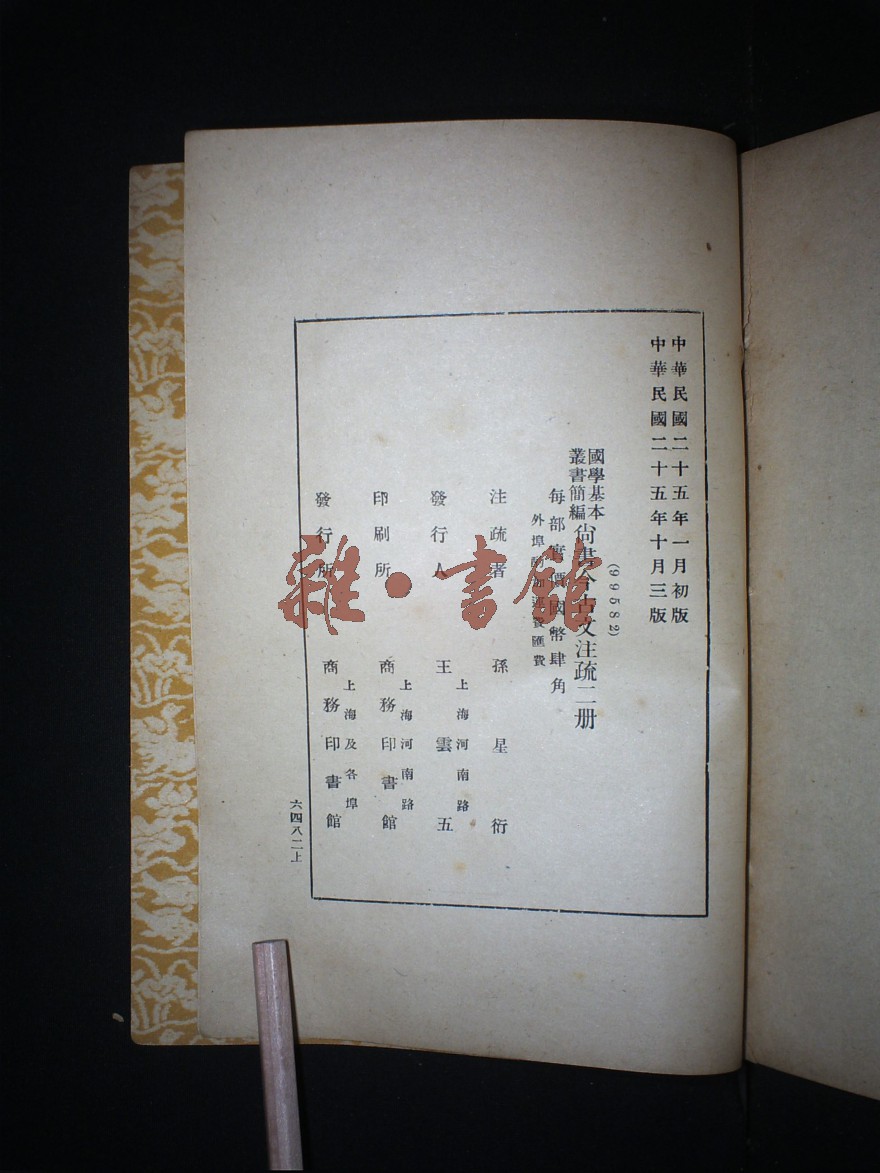 中華民國二十五年一月初版
中華民國二十五年十月三版
(99582)
國學基本
叢書簡編
尙書今古文注疏二册
每部實價國幣肆角
外埠酌加運費匯費
注疏者 孫星衍
發行人 王雲五
上海河南路
印刷所 商務印書館
上海河南路
發行所 商務印書館
上海及各埠
六四八二上
雜·書館